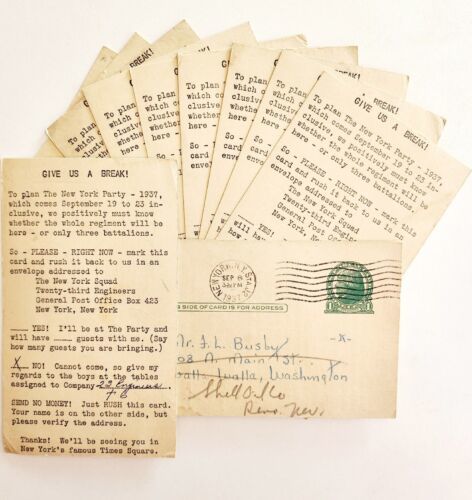 GIVE US A BREAK!
To plan The New York Party - 1937,
which comes September 19 to 23 in-
clusive, we positively must know
whether the whole regiment will be
here - or only three battalions.
So - PLEASE - RIGHT NOW - mark this
card and rush it back to us in an
envelope addressed to
The New York Squad
Twenty-third Engineers
General Post Office Box 423
New York, New York
____ YES! I'll be at The Party and
will have ____ guests with me. (Say
how many guests you are bringing.)
X NO! Cannot come, so give my
regards to the boys at the tables
assigned to Company 23 Engineers.
SEND NO MONEY! Just RUSH this card.
Your name is on the other side, but
please verify the address.
Thanks! We'll be seeing you in
New York's famous Times Square.
BREAK!
To plan
which com
clusive,
whether
here - o
So - P
card a
envel
To plan
which co
clusive
whether
here -
So -
card
env
To plan
which com
clusive
whether
here -
So -
card
enve
BREAK!
GIVE US A BREAK!
To plan The New York Party - 1937,
which comes September 19 to 23 in-
clusive, we positively must know
whether the whole regiment will be
here - or only three battalions.
So - PLEASE - RIGHT NOW - mark this
card and rush it back to us in an
envelope addressed to
The New York Squad
Twenty-third Engineers
General Post Office
New York, New
NEW YORK, N.Y.
SEP 8
1937
SIDE OF CARD IS FOR ADDRESS
Mr. F.L. Busby
08 N. Main St.
Walla Walla, Washington
Shell Oil Co
Reno. Nev.